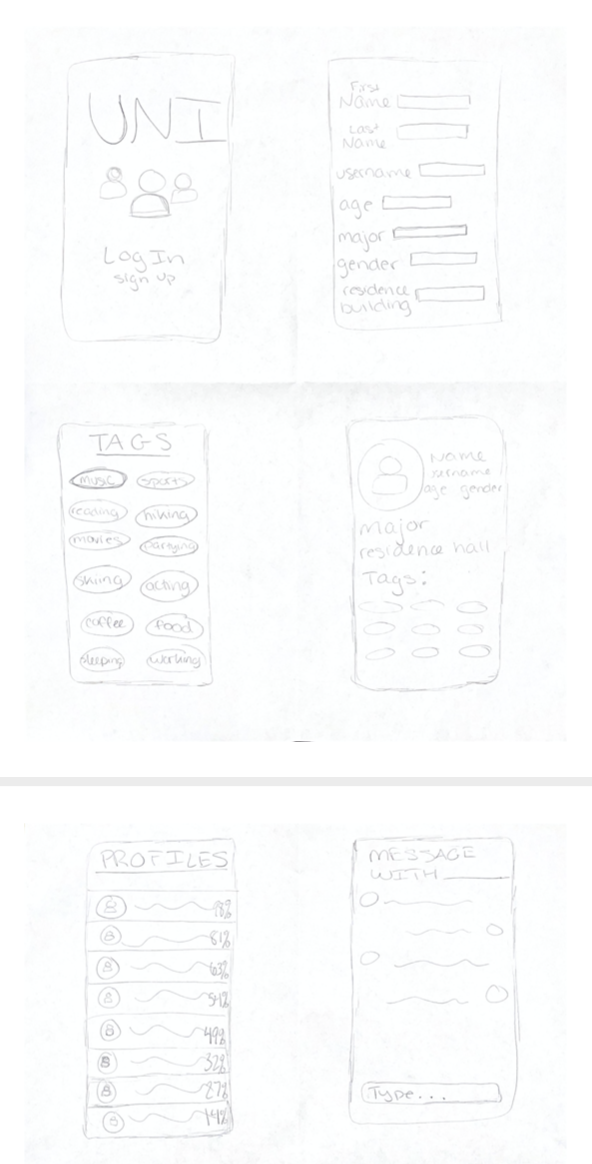 UNI
Log In
sign up
First
Name
Last
Name
username
age
major
gender
residence
building
TAGS
music sports
reading hiking
movies partying
skiing acting
coffee food
sleeping working
Name
username
age gender
major
residence hall
Tags:
PROFILES
98%
81%
63%
54%
49%
32%
27%
14%
MESSAGE
WITH
Type...